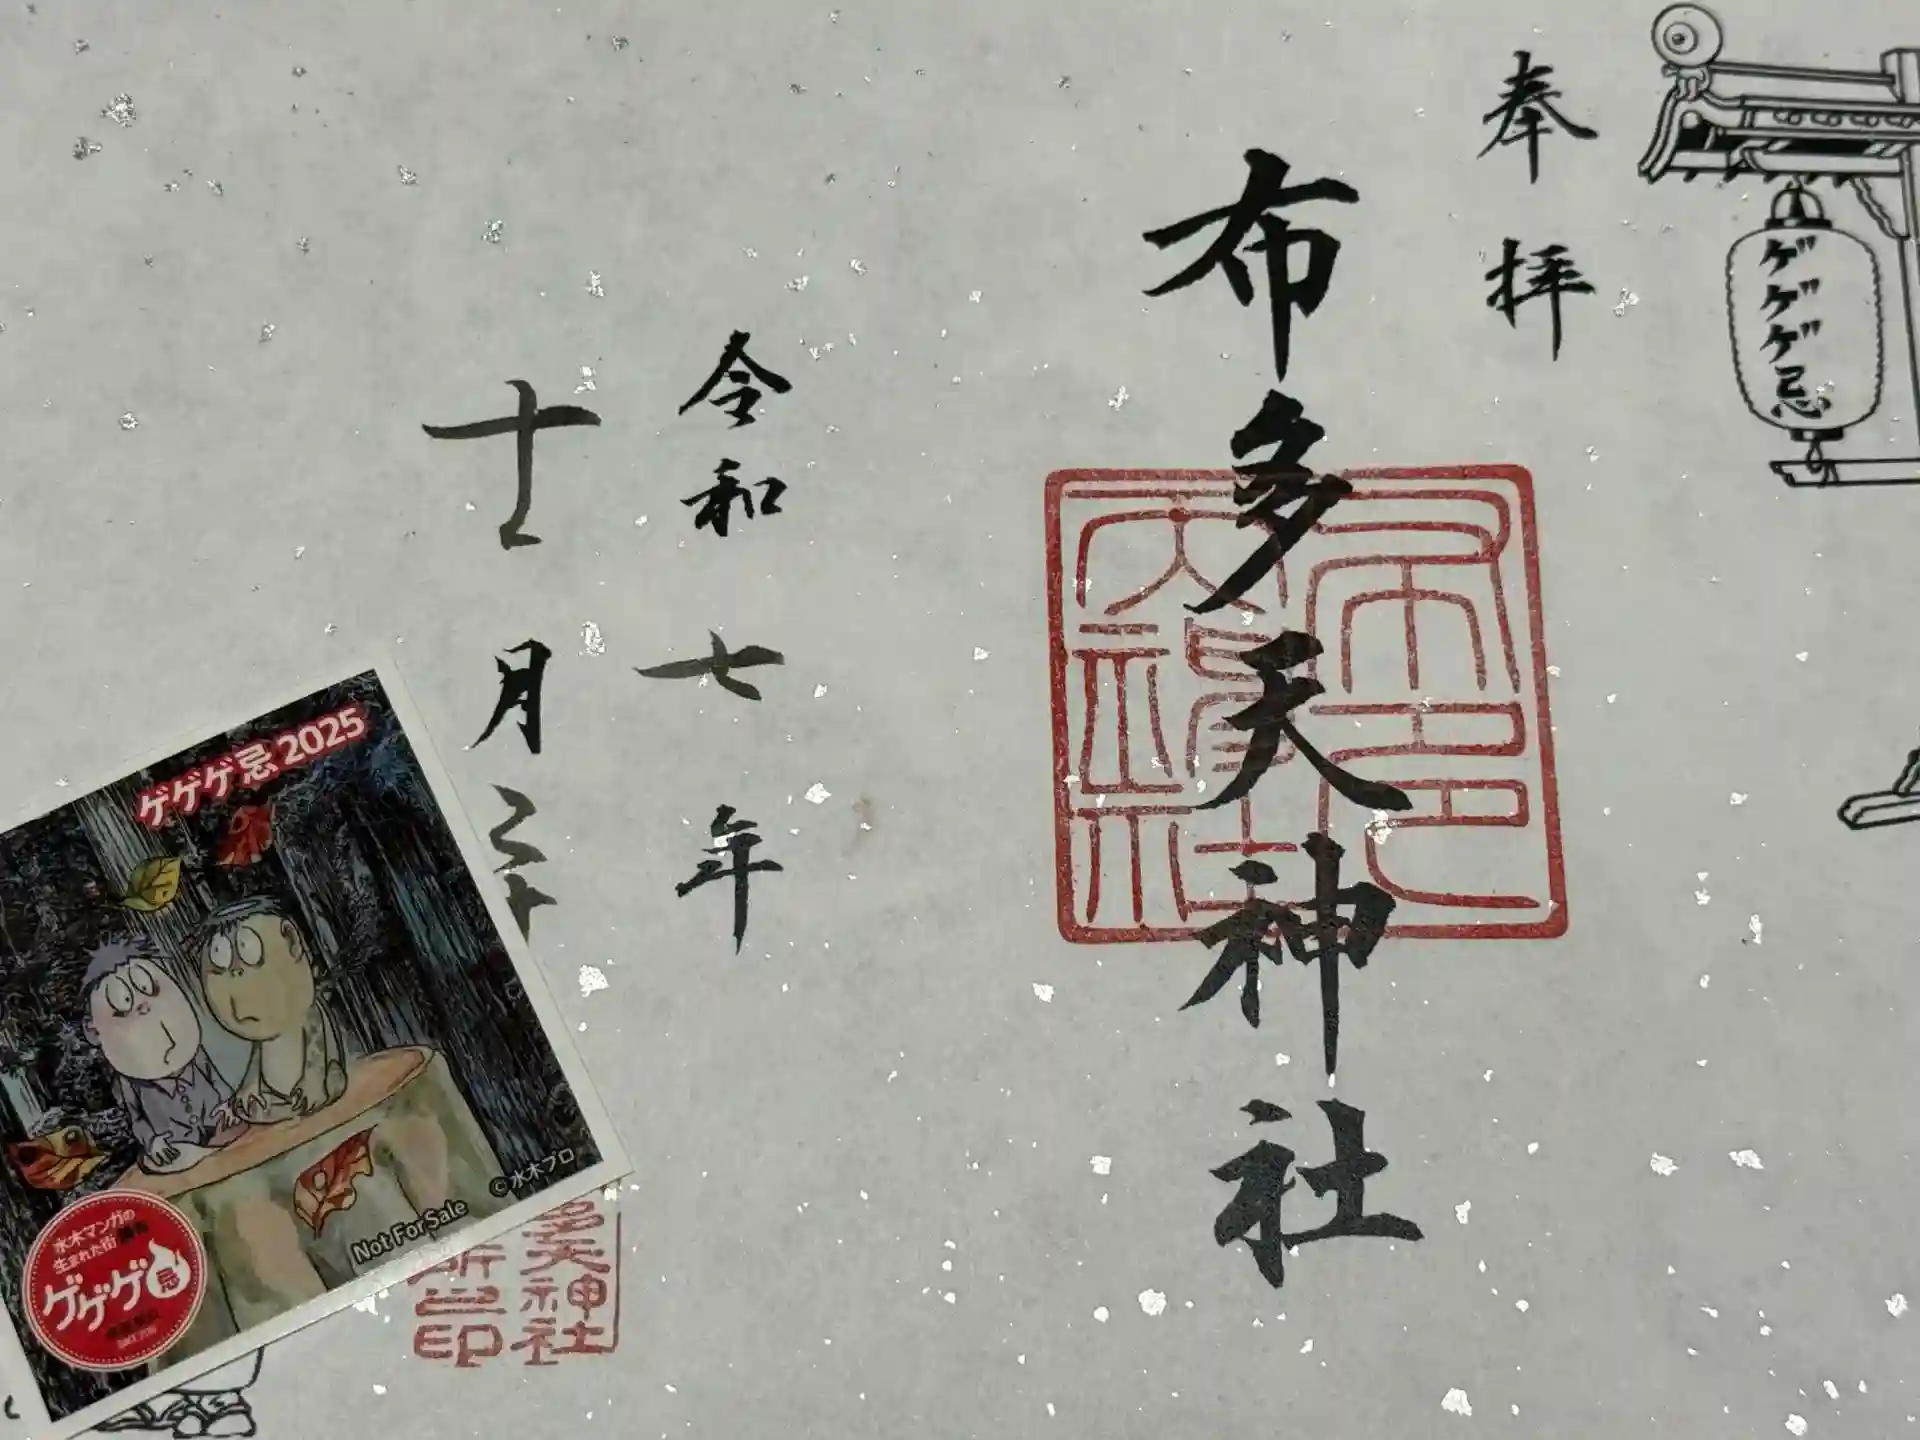 奉拝
ゲゲゲ忌
布多天神社
布多天神社
令和七年
十一月
天神社
所之印
ゲゲゲ忌2025
©水木プロ
Not For Sale
水木マンガの
生まれた街 調布
ゲゲゲ忌